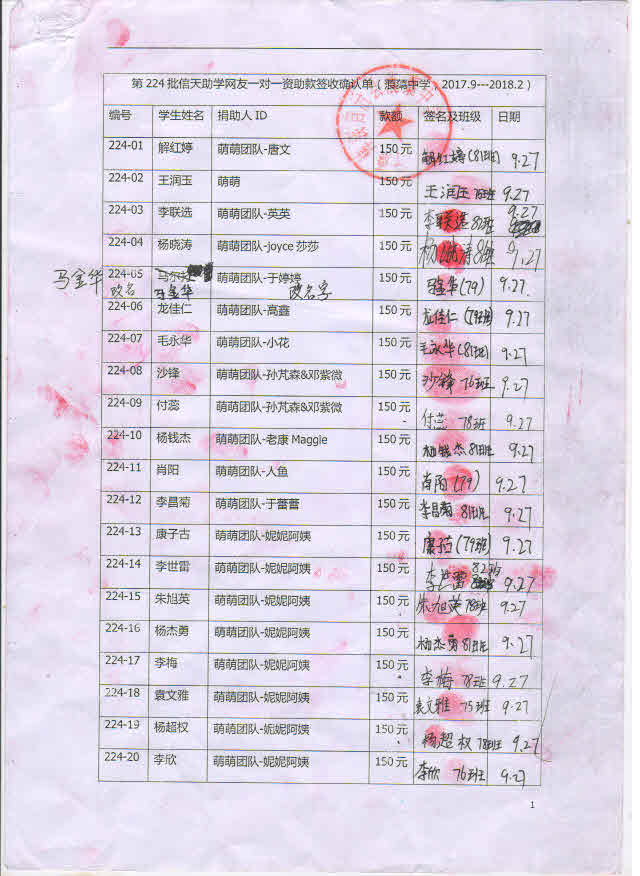 第 224 批信天助学网友一对一资助款签收确认单（濵碤中学，2017.9---2018.2）
编号 学生姓名 捐助人 ID 款额 签名及班级 日期
224-01 解红婷 萌萌团队-唐文 150 元 解红婷(81班) 9.27
224-02 王润玉 萌萌 150 元 王润玉 78班 9.27
224-03 李联选 萌萌团队-英英 150 元 李联选 82班 9.27
224-04 杨晓涛 萌萌团队-joyce 莎莎 150 元 杨晓涛 81班 9.27
马金华 224-05 马尔 萌萌团队-于婷婷 150 元 马金华(79) 9.27
改名 马金华 改名字
224-06 龙佳仁 萌萌团队-高鑫 150 元 龙佳仁 (79班) 9.27
224-07 毛永华 萌萌团队-小花 150 元 毛永华(81班) 9.27
224-08 沙锋 萌萌团队-孙芃森&邓紫微 150 元 沙锋 76班 9.27
224-09 付蕊 萌萌团队-孙芃森&邓紫微 150 元 付蕊 78班 9.27
224-10 杨钱杰 萌萌团队-老康 Maggie 150 元 杨钱杰 81班 9.27
224-11 肖阳 萌萌团队-人鱼 150 元 肖阳(79) 9.27
224-12 李昌菊 萌萌团队-于蕾蕾 150 元 李昌菊 81班 9.27
224-13 康子古 萌萌团队-妮妮阿姨 150 元 康子古(79班) 9.27
224-14 李世雷 萌萌团队-妮妮阿姨 150 元 李世雷 82班 9.27
224-15 朱旭英 萌萌团队-妮妮阿姨 150 元 朱旭英 78班 9.27
224-16 杨杰勇 萌萌团队-妮妮阿姨 150 元 杨杰勇 81班 9.27
224-17 李梅 萌萌团队-妮妮阿姨 150 元 李梅 78班 9.27
224-18 袁文雅 萌萌团队-妮妮阿姨 150 元 袁文雅 75班 9.27
224-19 杨超权 萌萌团队-妮妮阿姨 150 元 杨超权 78班 9.27
224-20 李欣 萌萌团队-妮妮阿姨 150 元 李欣 76班 9.27
1